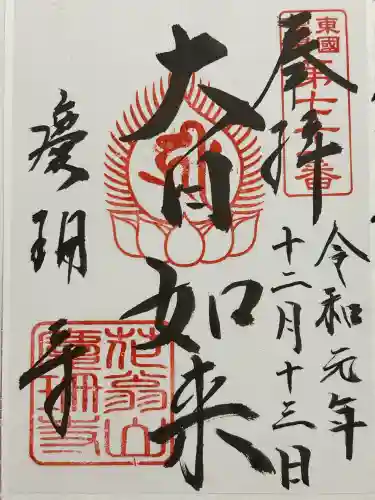 東國
第七十二番
奉拝
令和元年
十二月十三日
大日如来
慶珊寺
花翁山
慶珊寺